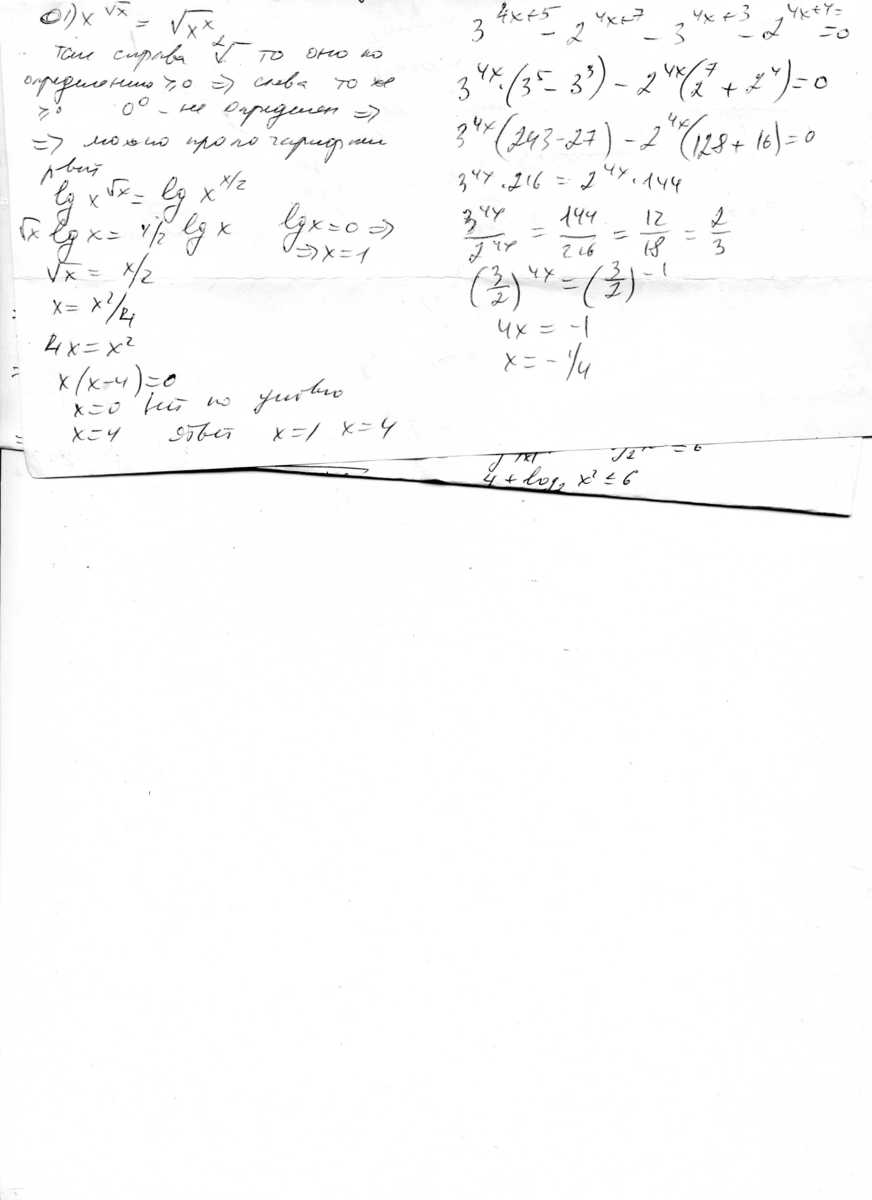 1) x^√x = √x^x
Там справа √ то оно по
определению ≥0 ⇒ слева то же
≥0 0⁰ - не определен ⇒
⇒ можно прологарифми
ровать
lg x^√x = lg x^x/2
√x lg x = x/2 lg x lg x = 0 ⇒
⇒ x = 1
√x = x/2
x = x²/4
4x = x²
x(x-4)=0
x=0 нет по условию
x=4 Ответ x=1 x=4
3^4x+5 - 2^4x+7 - 3^4x+3 - 2^4x+4 =
=0
3^4x·(3⁵-3³) - 2^4x(2⁷ + 2⁴)=0
3^4x(243-27) - 2^4x(128+16)=0
3^4x·216 = 2^4x·144
3^4x/2^4x = 144/216 = 12/18 = 2/3
(3/2)^4x = (3/2)^-1
4x = -1
x = -1/4
4 + log₂ x² ≤ 6